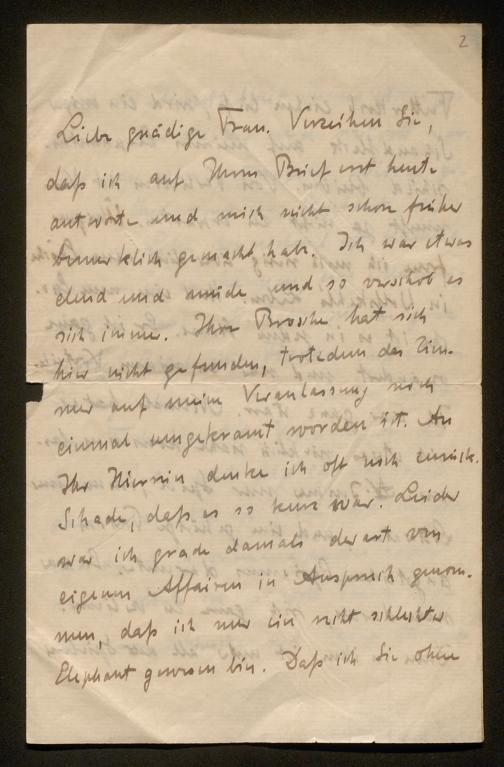 2
Liebe gnädige Frau. Verzeihen Sie,
daß ich auf Ihren Brief erst heute
antworte und mich nicht schon früher
bemerklich gemacht habe. Ich war etwas
elend und müde und so verschob es
sich immer. Ihre Brosche hat sich
hier nicht gefunden, trotzdem das Zim-
mer auf meine Veranlassung noch
einmal umgekramt worden ist. An
Ihr Hiersein denke ich oft noch zurück.
Schade, daß es so kurz war. Leider
war ich grade damals derart von
eigenen Affairen in Anspruch genom-
men, daß ich nur ein recht schlechter
Elephant gewesen bin. Daß ich Sie ohne